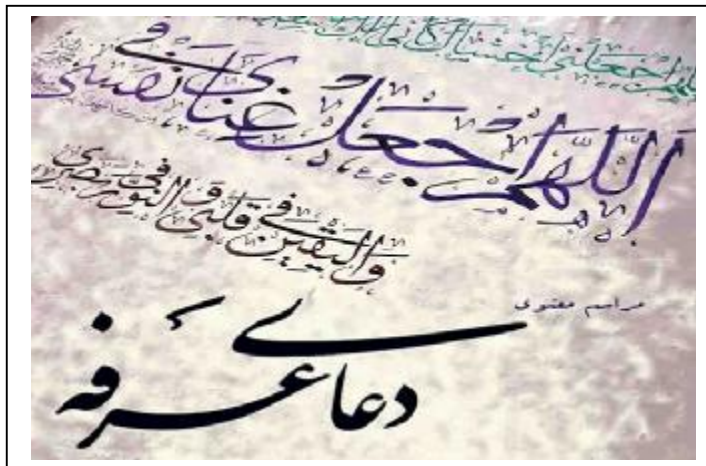 اللهم اجعلني اخشاك كأني أراك
اَللّهُمَّ اجْعَلْ غِنايَ في نَفْسي
وَالْيَقينَ في قَلْبي وَ النُّورَ في بَصَري
مراسم معنوی
دعای عرفه